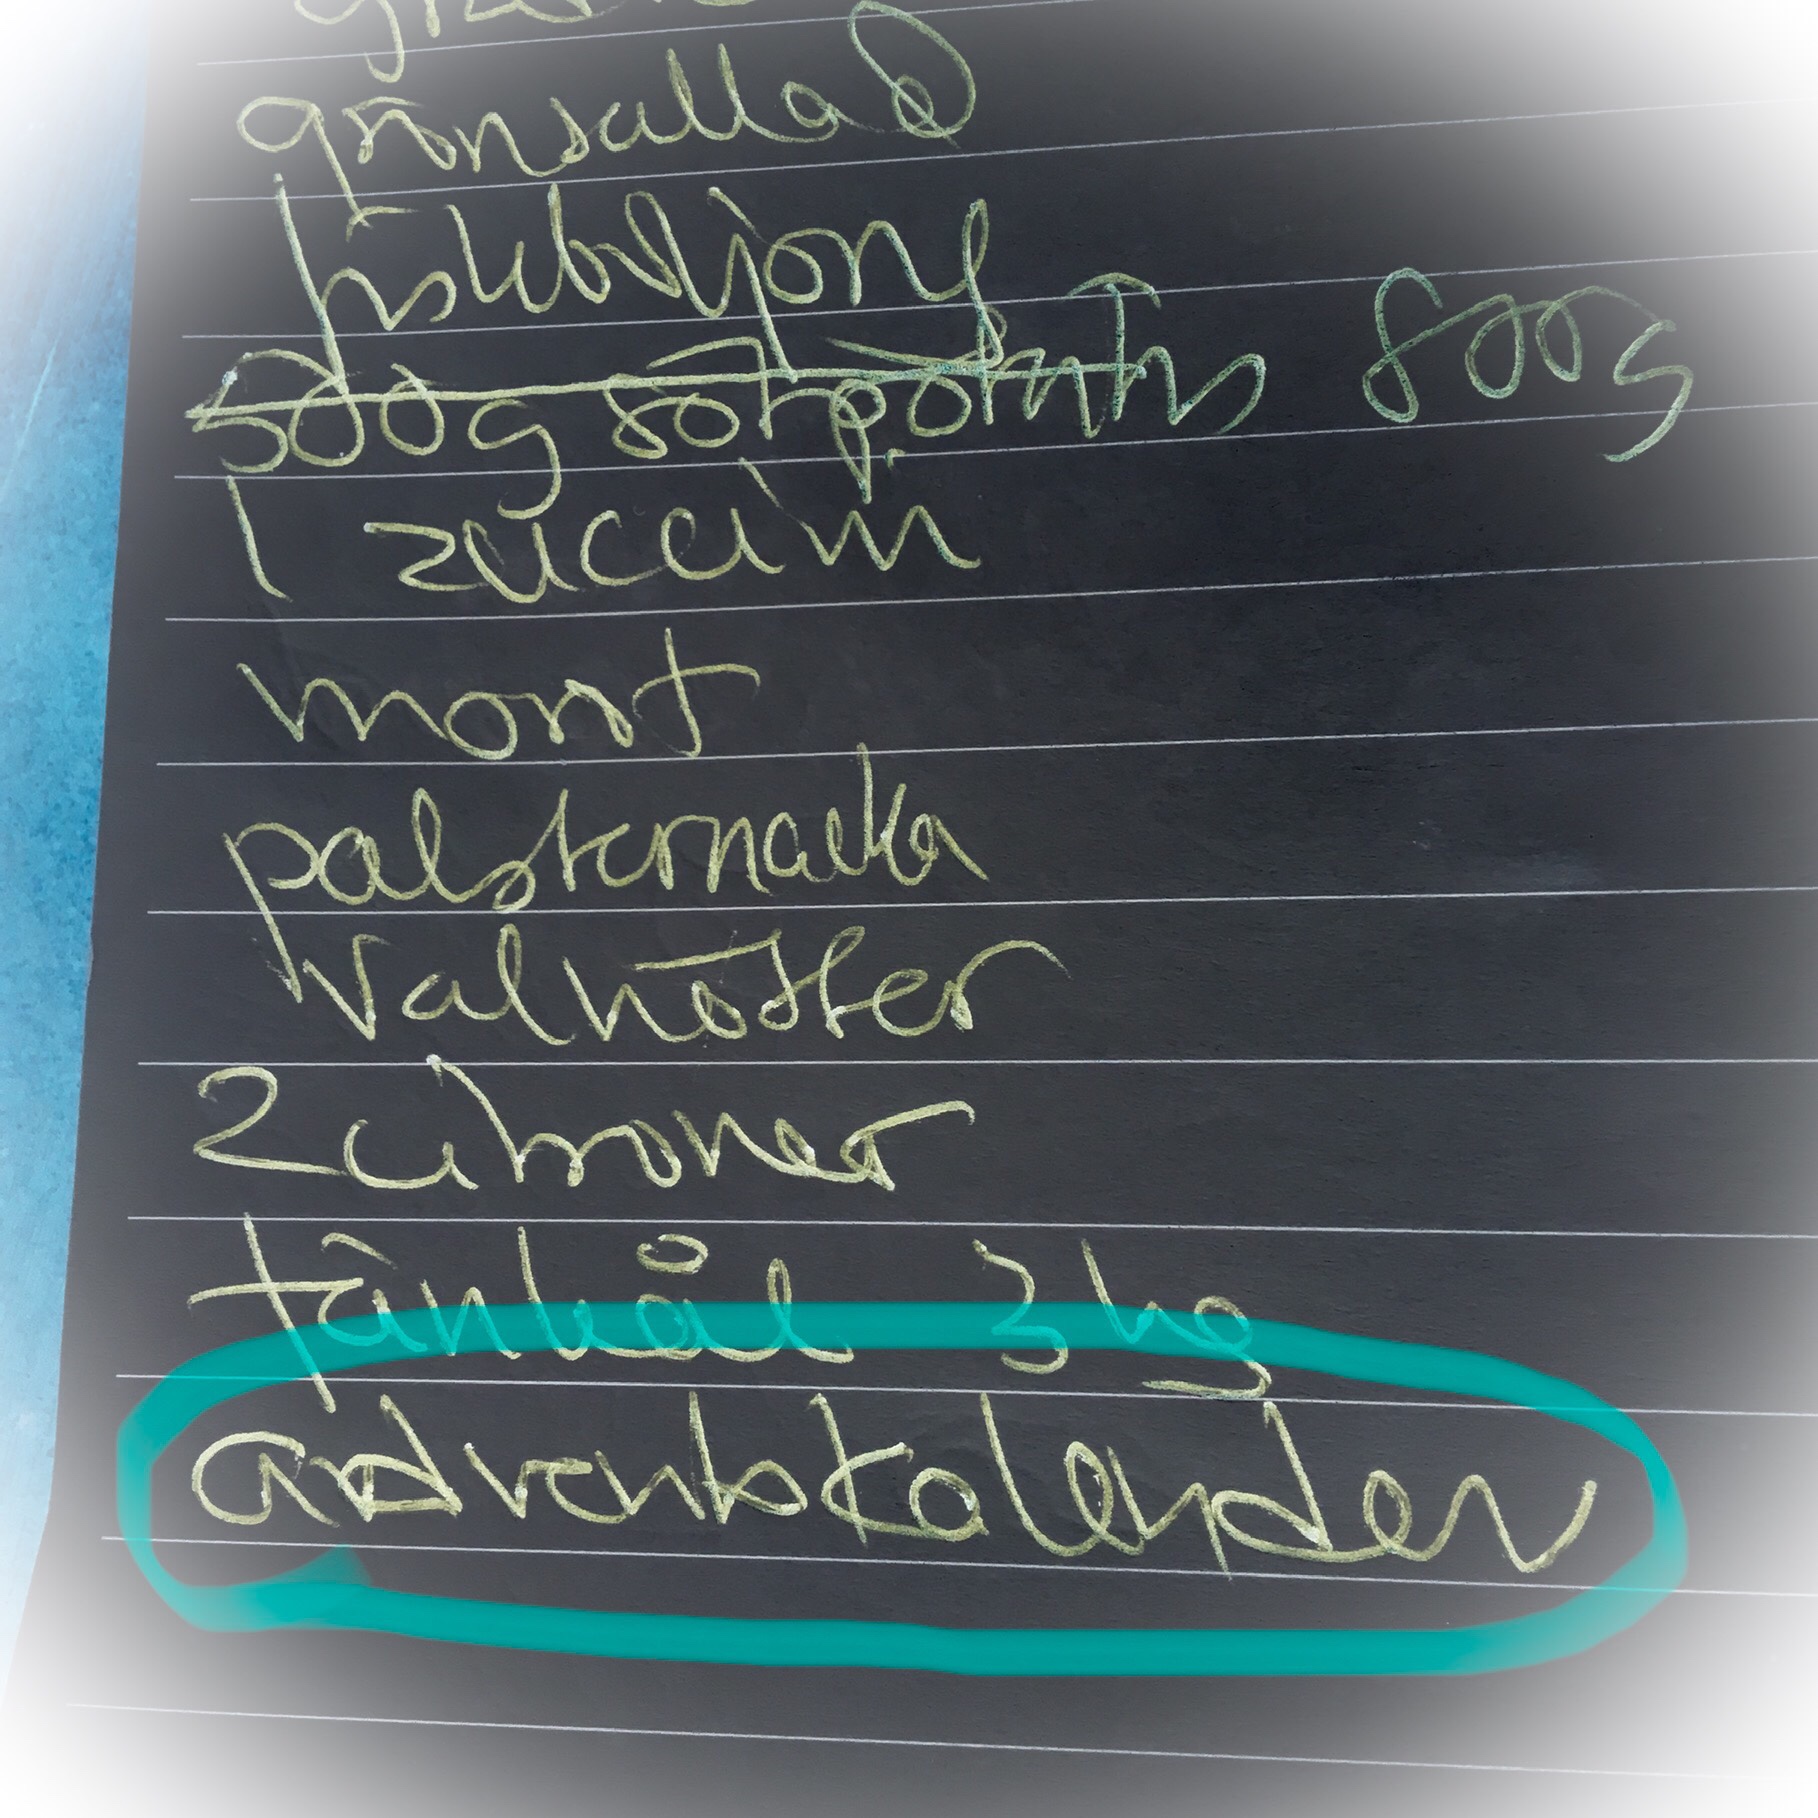 grönsallad
fiskbuljong
500g sötpotatis 800g
1 zuccini
morot
palsternacka
valnötter
2 citroner
fänkål 3 kg
adventskalender